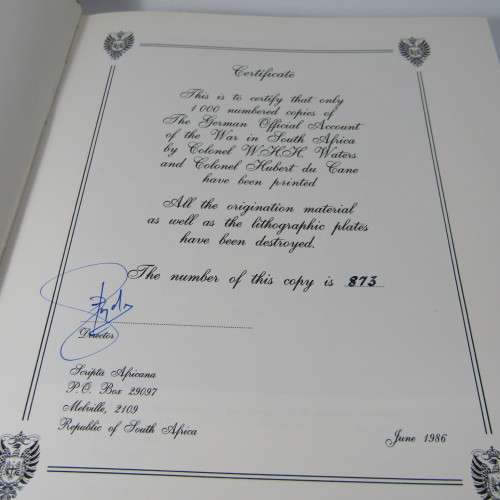 Certificate
This is to certify that only
1 000 numbered copies of
The German Official Account
of the War in South Africa
by Colonel W.H.H. Waters
and Colonel Hubert du Cane
have been printed
All the origination material
as well as the lithographic plates
have been destroyed.
The number of this copy is 873
Director
Scripta Africana
P.O. Box 29097
Melville, 2109
Republic of South Africa
June 1986